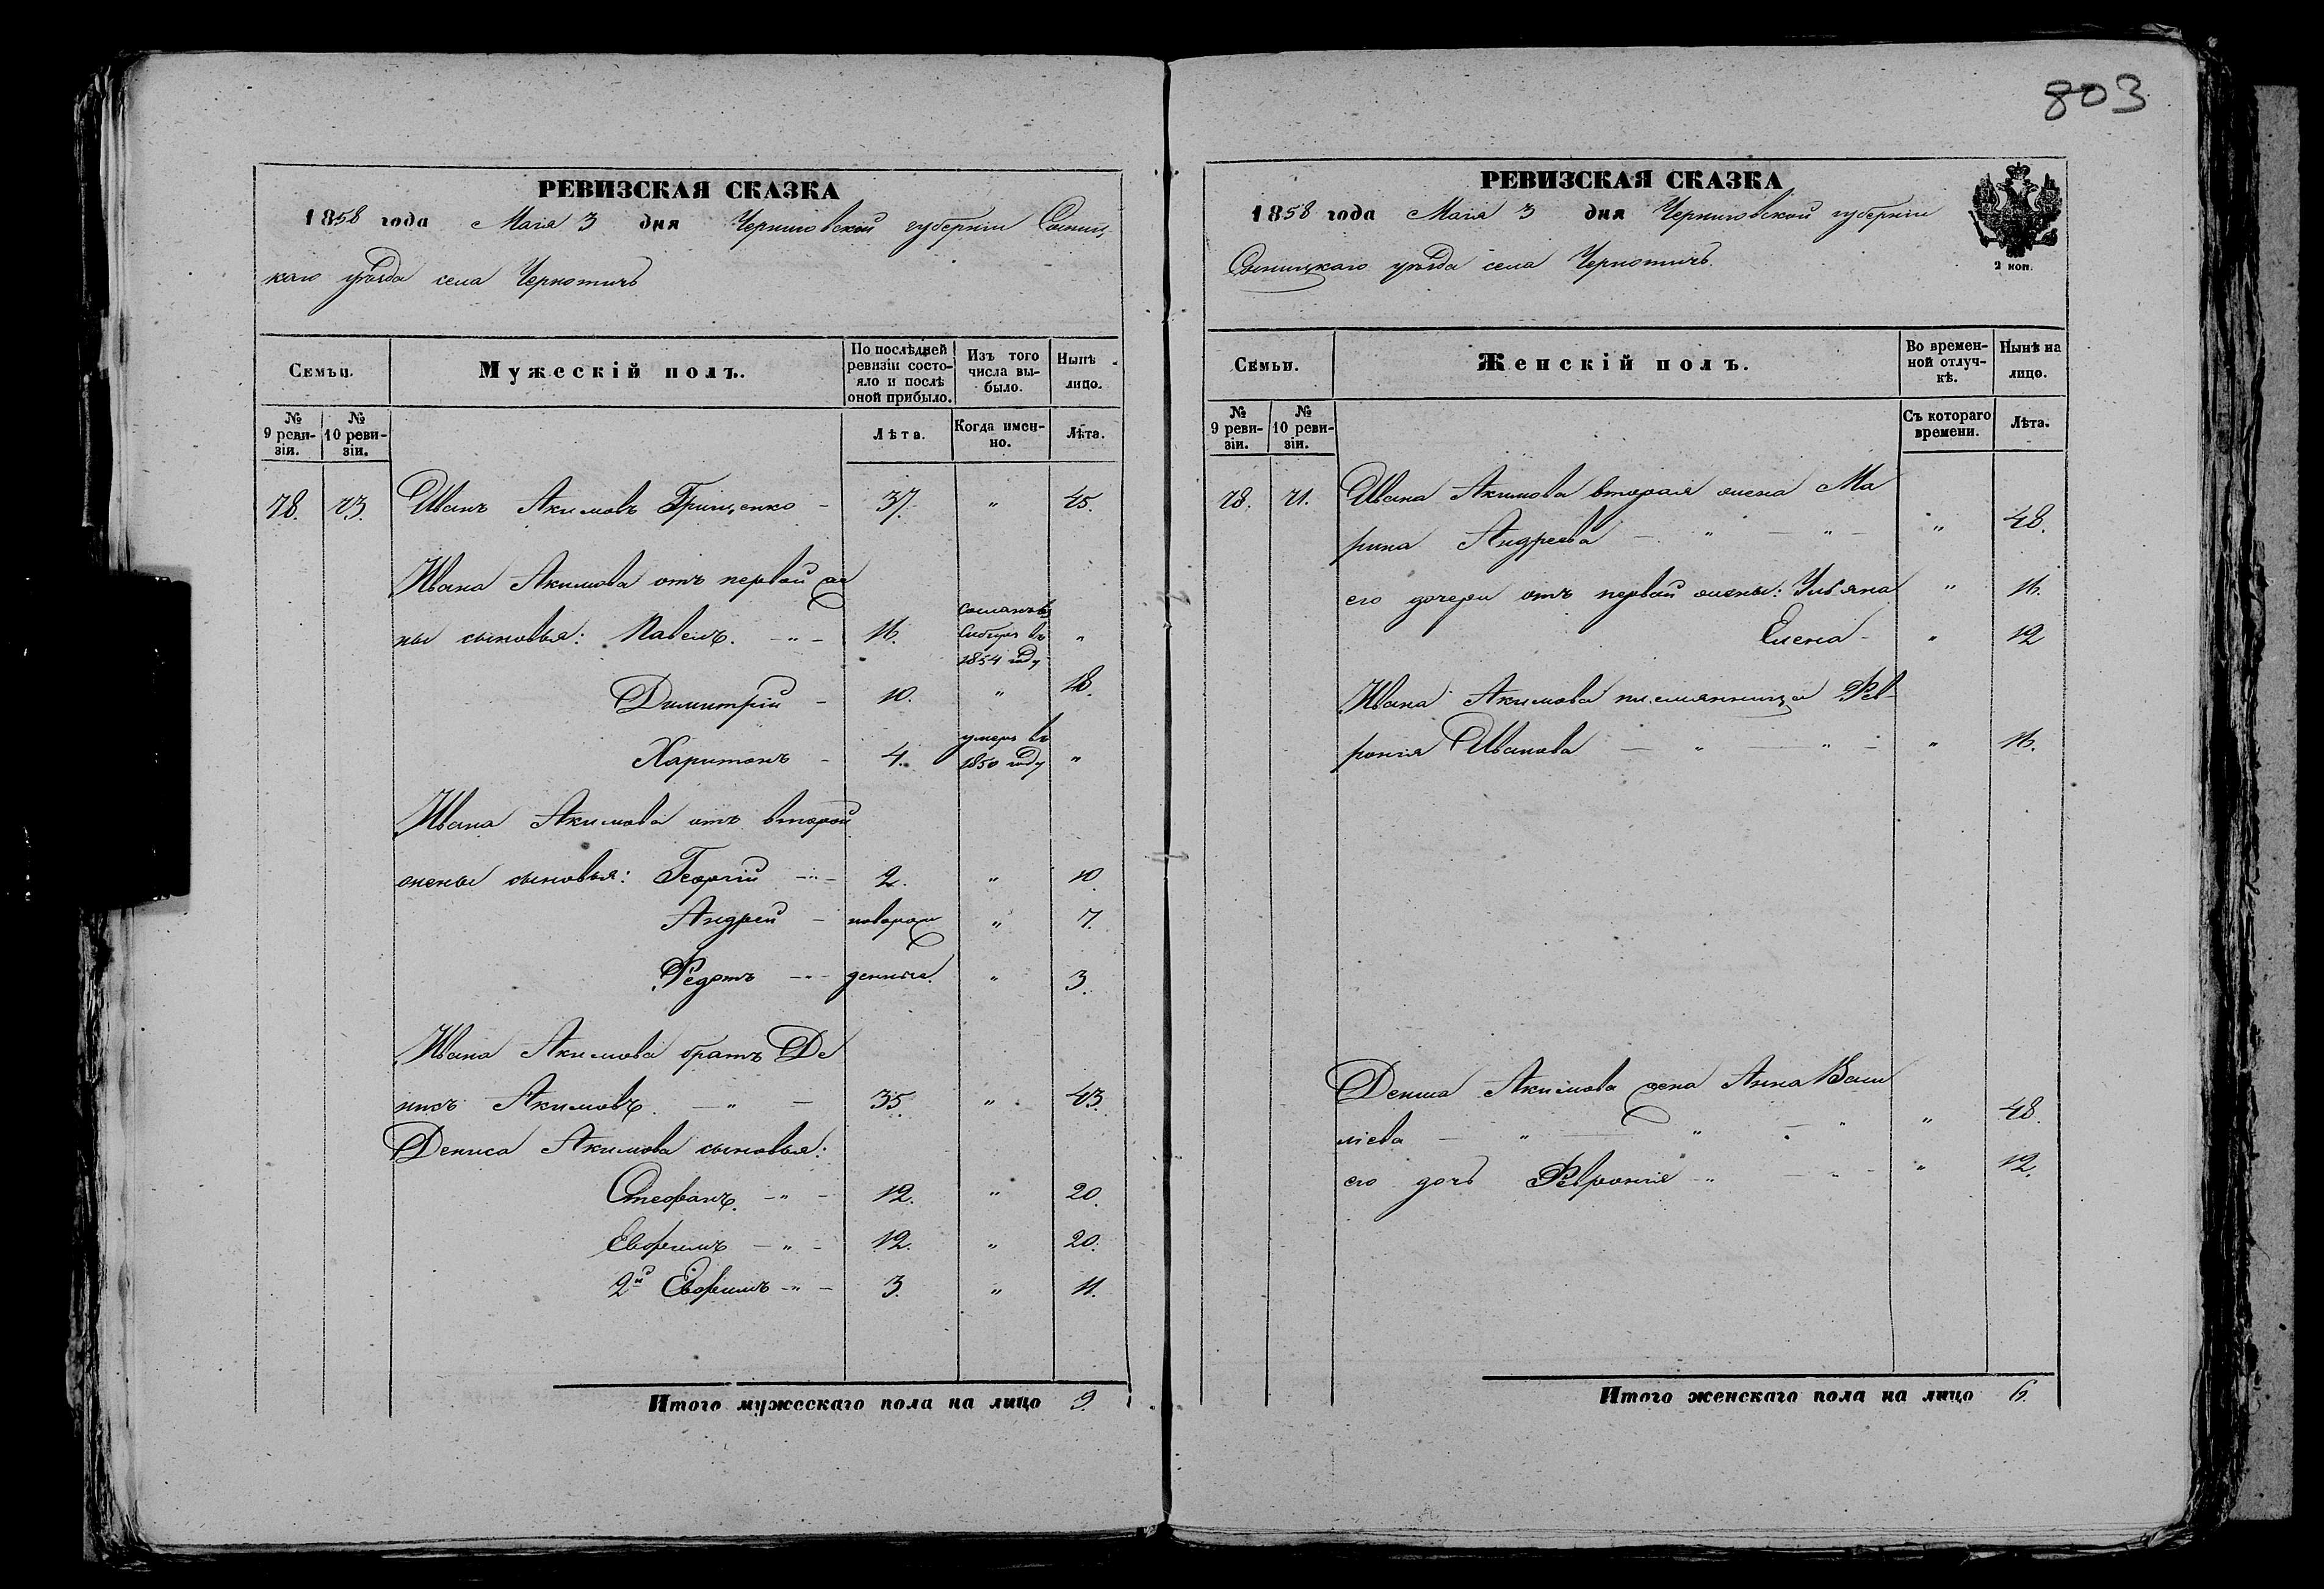 803
РЕВИЗСКАЯ СКАЗКА
1858 года Маія 3 дня Черниговской губерніи Сосниц
каго уѣзда села Чернотичъ
Семьи.
Мужескій полъ.
По послѣдней ревизіи состояло и послѣ оной прибыло.
Изъ того числа выбыло.
Нынѣ лицо.
№ 9 ревизіи.
№ 10 ревизіи.
Лѣта.
Когда именно.
Лѣта.
78. 73. Иванъ Акимовъ Грищенко - 37. " 45.
Ивана Акимова отъ первой же
ны сыновья: Павелъ. - " - 16. сосланъ въ Сибирь въ 1854 году "
Димитрій - 10. " 18.
Харитонъ - 4. умеръ въ 1850 году "
Ивана Акимова отъ второй
жены сыновья: Георгій - " - 2. " 10.
Андрей - новорож " 7.
Федотъ - " - денные. " 3.
Ивана Акимова братъ Де
нисъ Акимовъ. - " - 35. " 43.
Дениса Акимова сыновья:
Стефанъ. - " - 12. " 20.
Евфимъ - " - 12. " 20.
2й Евфимъ - " - 3. " 11.
Итого мужескаго пола на лицо 9.
РЕВИЗСКАЯ СКАЗКА
1858 года Маія 3 дня Черниговской губерніи
Сосницкаго уѣзда села Чернотичъ.
2 коп.
Семьи.
Женскій полъ.
Во временной отлучкѣ.
Нынѣ на лицо.
№ 9 ревизіи.
№ 10 ревизіи.
Съ котораго времени.
Лѣта.
78. 71. Ивана Акимова вторая жена Ма
рина Андреева - " - " - " 48.
его дочери отъ первой жены: Ульяна " 16.
Елена - " 12
Ивана Акимова племянница Фев-
ронія Иванова - " - " - " 16.
Дениса Акимова жена Анна Васи
ліева - " - " - " " 48.
его дочь Февронія - " - " " 12.
Итого женскаго пола на лицо 6.